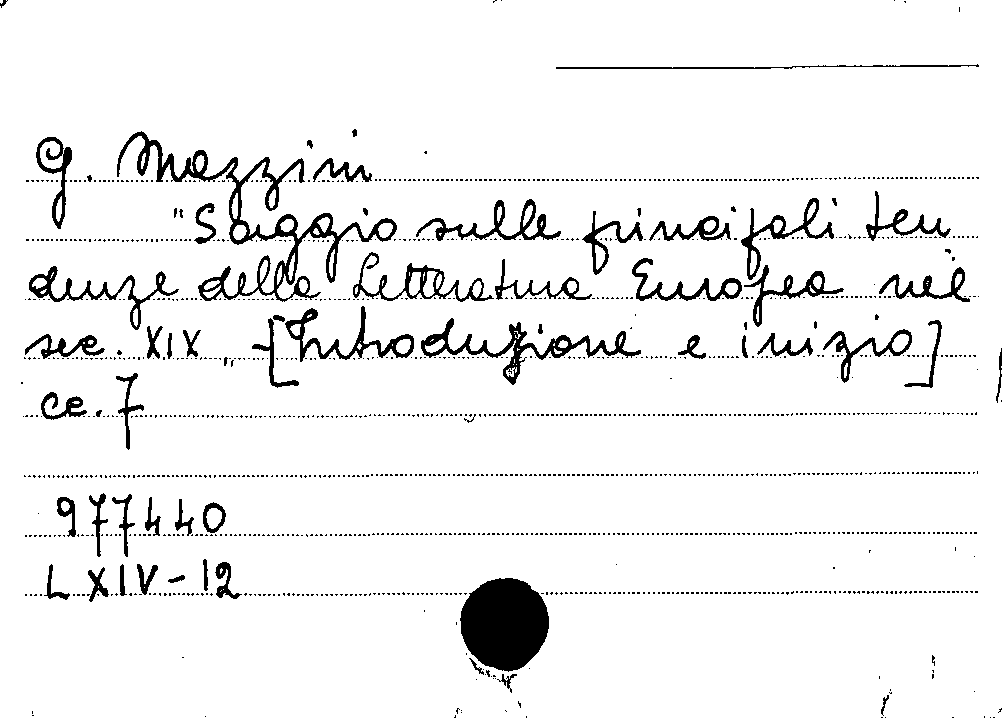 G. Mazzini
"Saggio sulle principali ten
denze della Letteratura Europea nel
sec. XIX„ - [Introduzione e inizio]
cc. 7
977440
L XIV - 12